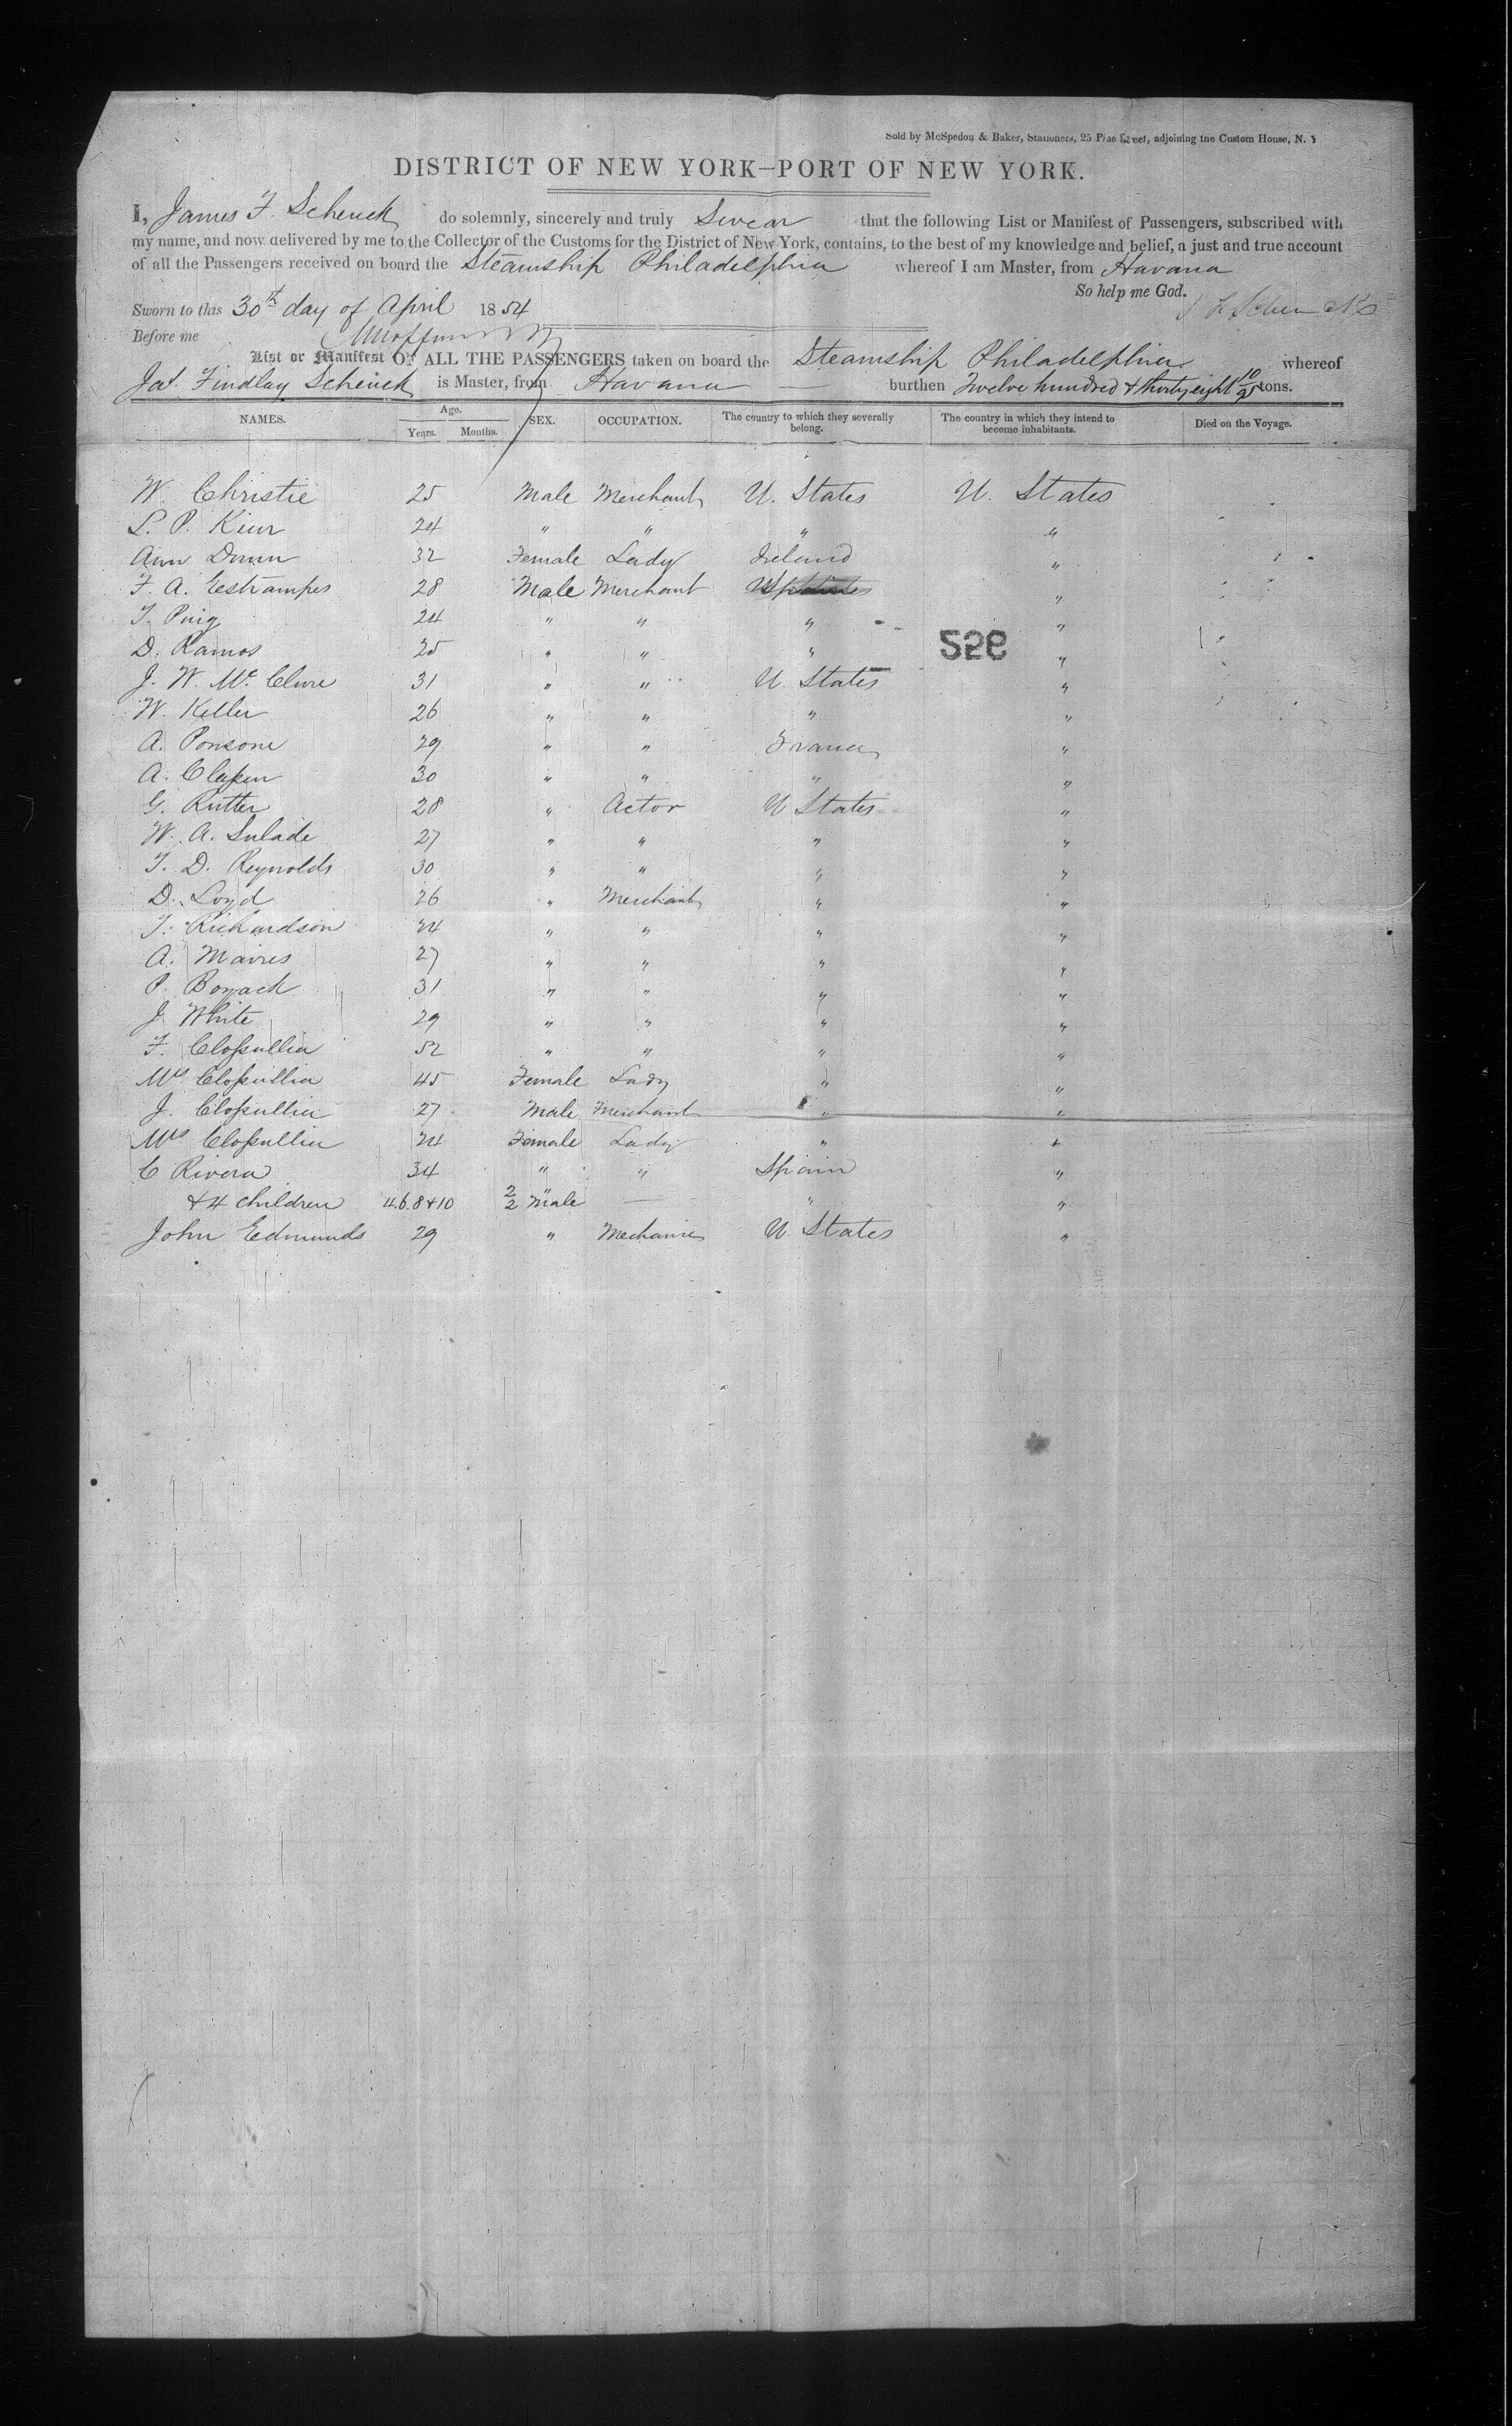 Sold by McSpedon & Baker, Stationers, 25 Pine Street, adjoining the Custom House, N. Y
DISTRICT OF NEW YORK—PORT OF NEW YORK.
I, James F. Schenck do solemnly, sincerely and truly Swear that the following List or Manifest of Passengers, subscribed with
my name, and now delivered by me to the Collector of the Customs for the District of New York, contains, to the best of my knowledge and belief, a just and true account
of all the Passengers received on board the Steamship Philadelphia whereof I am Master, from Havana
So help me God.
Sworn to this 30th day of April 1854
Before me
List or Manifest OF ALL THE PASSENGERS taken on board the Steamship Philadelphia whereof
Jas. Findlay Schenck is Master, from Havana burthen Twelve hundred & thirty eight tons.
NAMES. Age. Years. Months. SEX. OCCUPATION. The country to which they severally belong. The country in which they intend to become inhabitants. Died on the Voyage.
W. Christie 25 Male Merchant U. States U. States
L. P. 24 " " " "
Ann 32 Female Lady Ireland "
F. A. Estrampes 28 Male Merchant "
T. Puig 24 " " " "
D. Ramos 25 " " " "
526
J. W. Mc Clure 31 " " U. States "
W. Keller 26 " " " "
A. Ponsone 29 " " France "
A. 30 " " " "
G. Rutter 28 " Actor U States "
W. A. 27 " " " "
T. D. Reynolds 30 " " " "
D. Loyd 26 " Merchant " "
T. Richardson 24 " " " "
A. Maires 27 " " " "
P. 31 " " " "
J. White 29 " " " "
F. Clofsullia 52 " " " "
Mrs Clofsullia 45 Female Lady " "
J. Clofsullia 27 Male Merchant " "
Mrs Clofsullia 24 Female Lady " "
C Rivera 34 " " Spain "
& 4 children 4. 6. 8 & 10 2 " 2 Male — " "
John Edmunds 29 " Mechanic U. States "